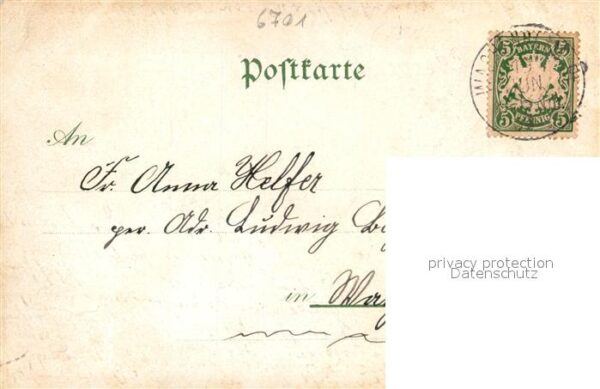 6701
Postkarte
5 BAYERN 5
5 PFENNIG 5
An
Fr. Anna Helfer
per. Adr. Ludwig
privacy protection
Datenschutz
in